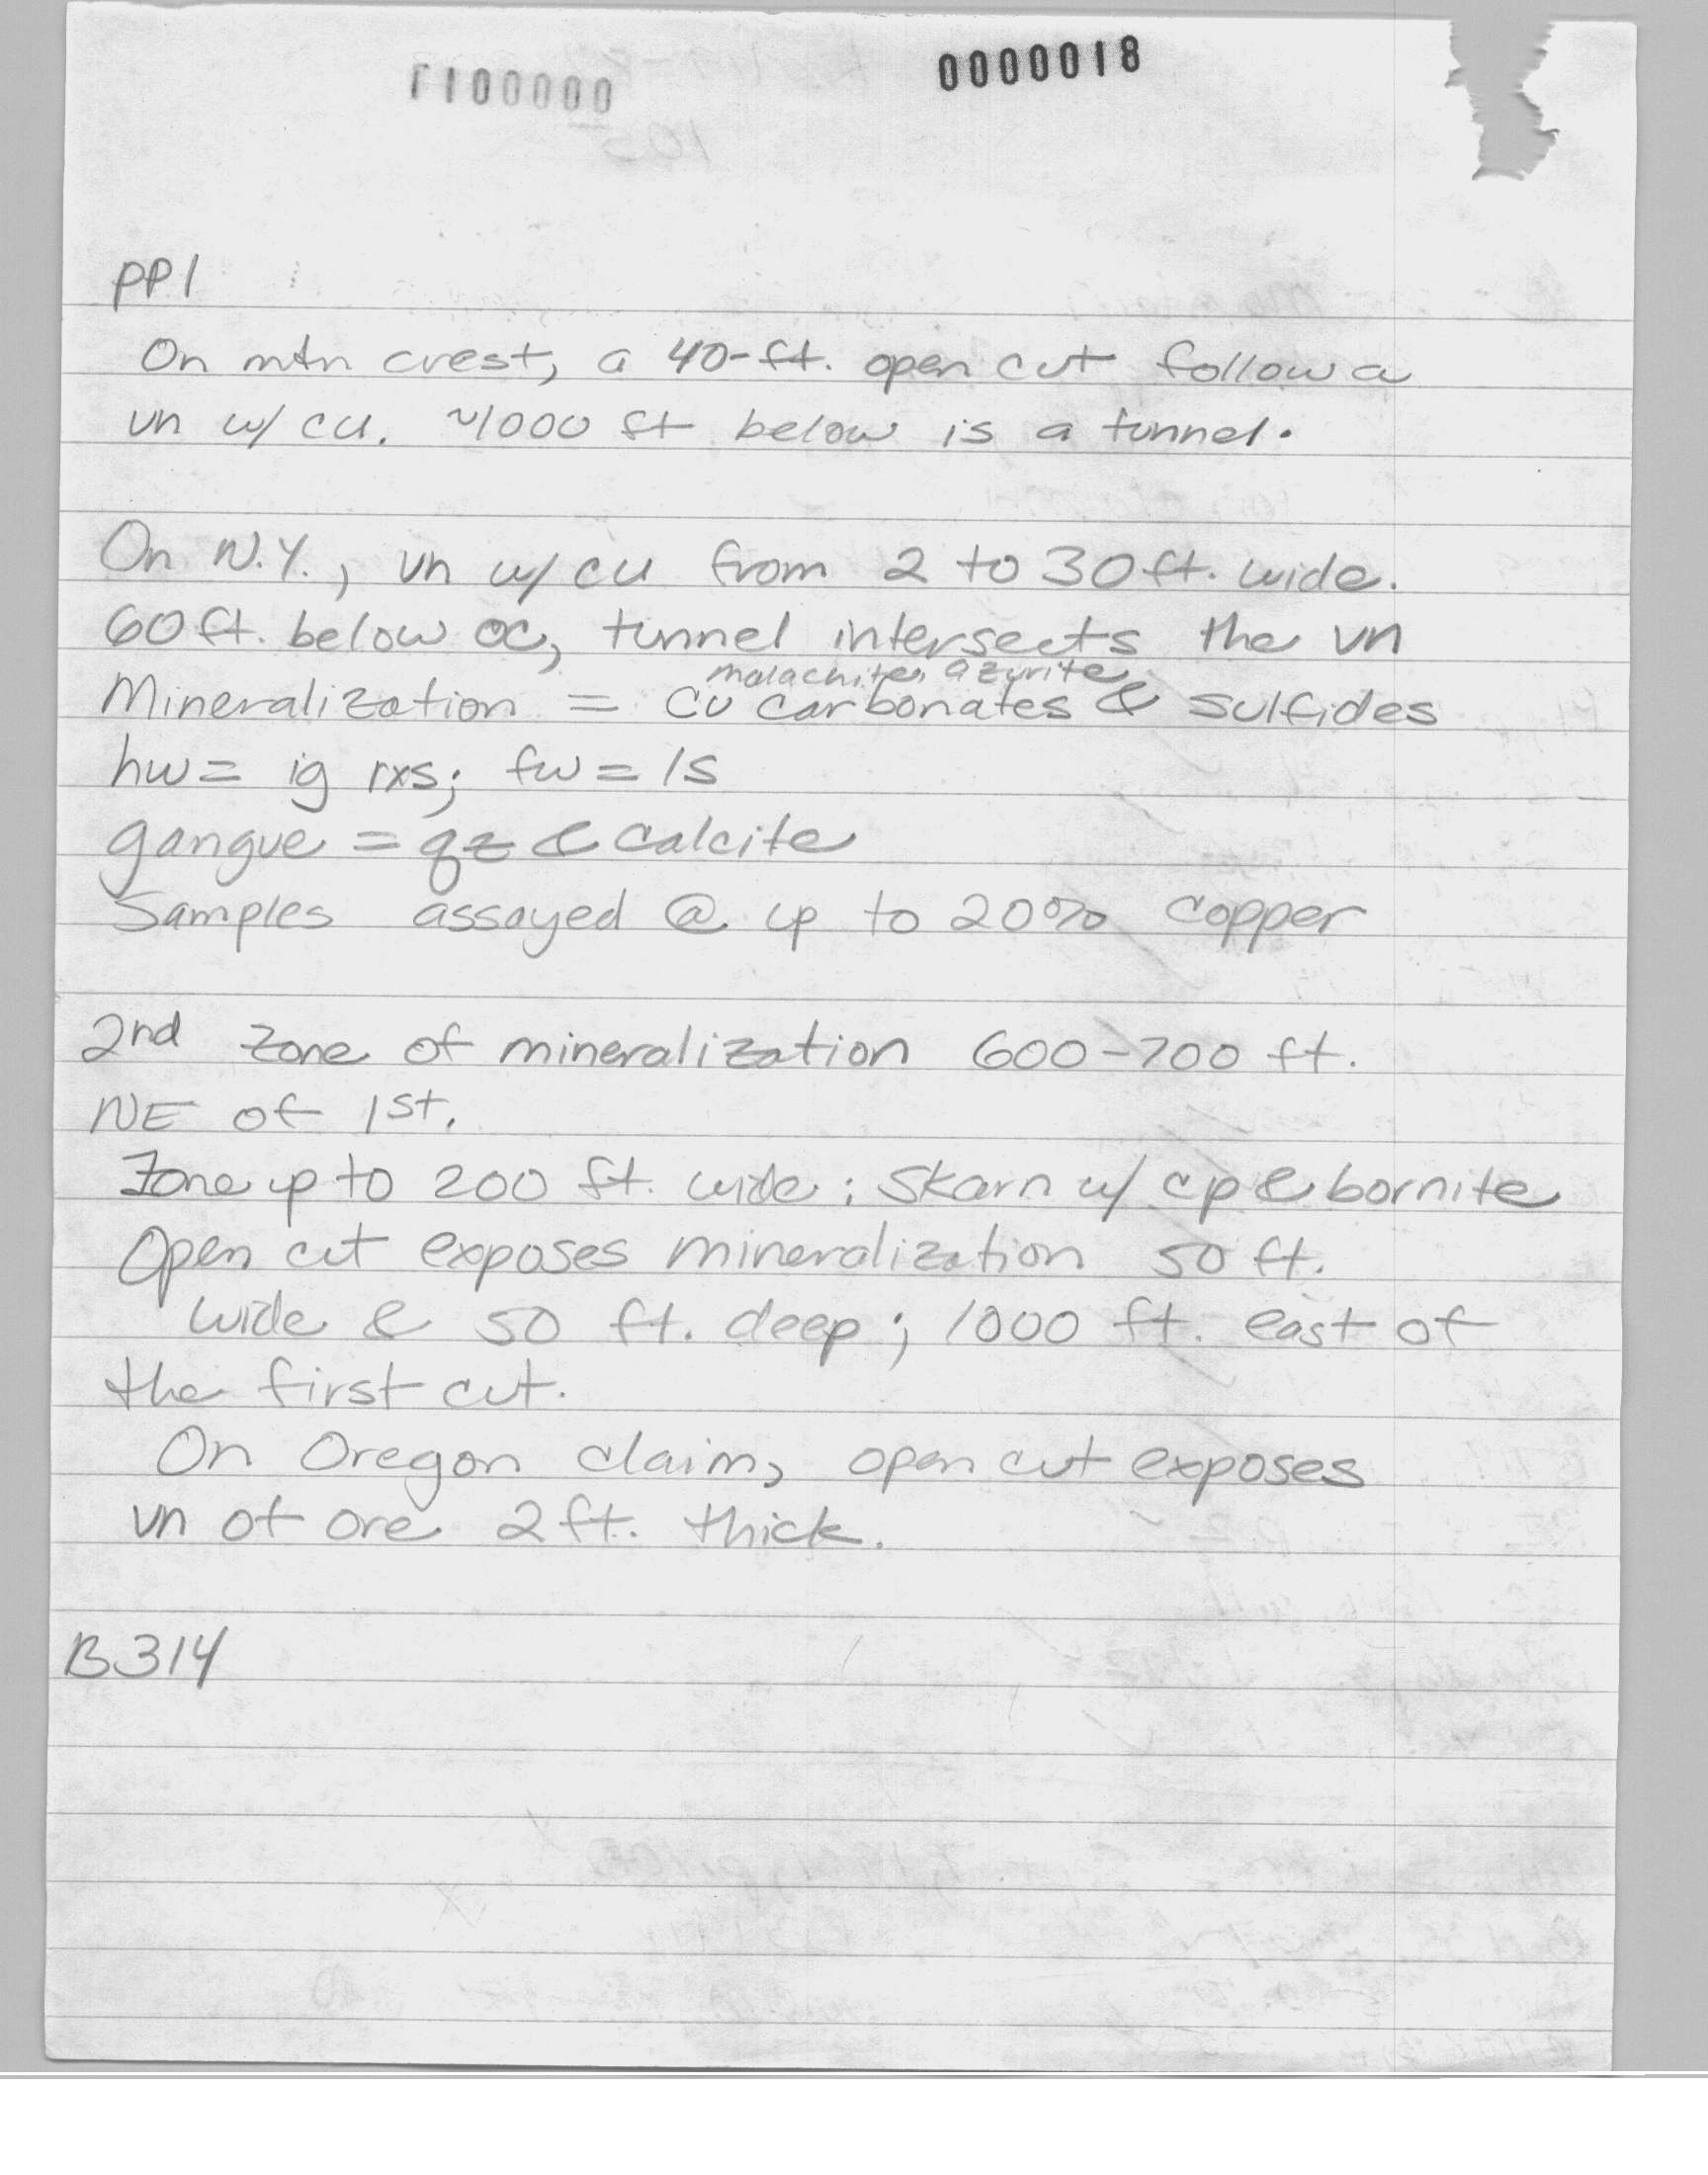 0000018
PP1
On mtn crest, a 40-ft. open cut follow a
vn w/ cu. ~1000 ft below is a tunnel.
On N.Y., vn w/ cu from 2 to 30 ft. wide.
60 ft. below oc, tunnel intersects the vn
malachite, azurite
Mineralization = Cu carbonates & sulfides
hw = ig rxs; fw = ls
gangue = qz & calcite
Samples assayed @ up to 20% copper
2nd zone of mineralization 600-700 ft.
NE of 1st.
Zone up to 200 ft. wide; skarn w/ cp & bornite
Open cut exposes mineralization 50 ft.
wide & 50 ft. deep; 1000 ft. east of
the first cut.
On Oregon claim, open cut exposes
vn of ore 2 ft. thick.
B314